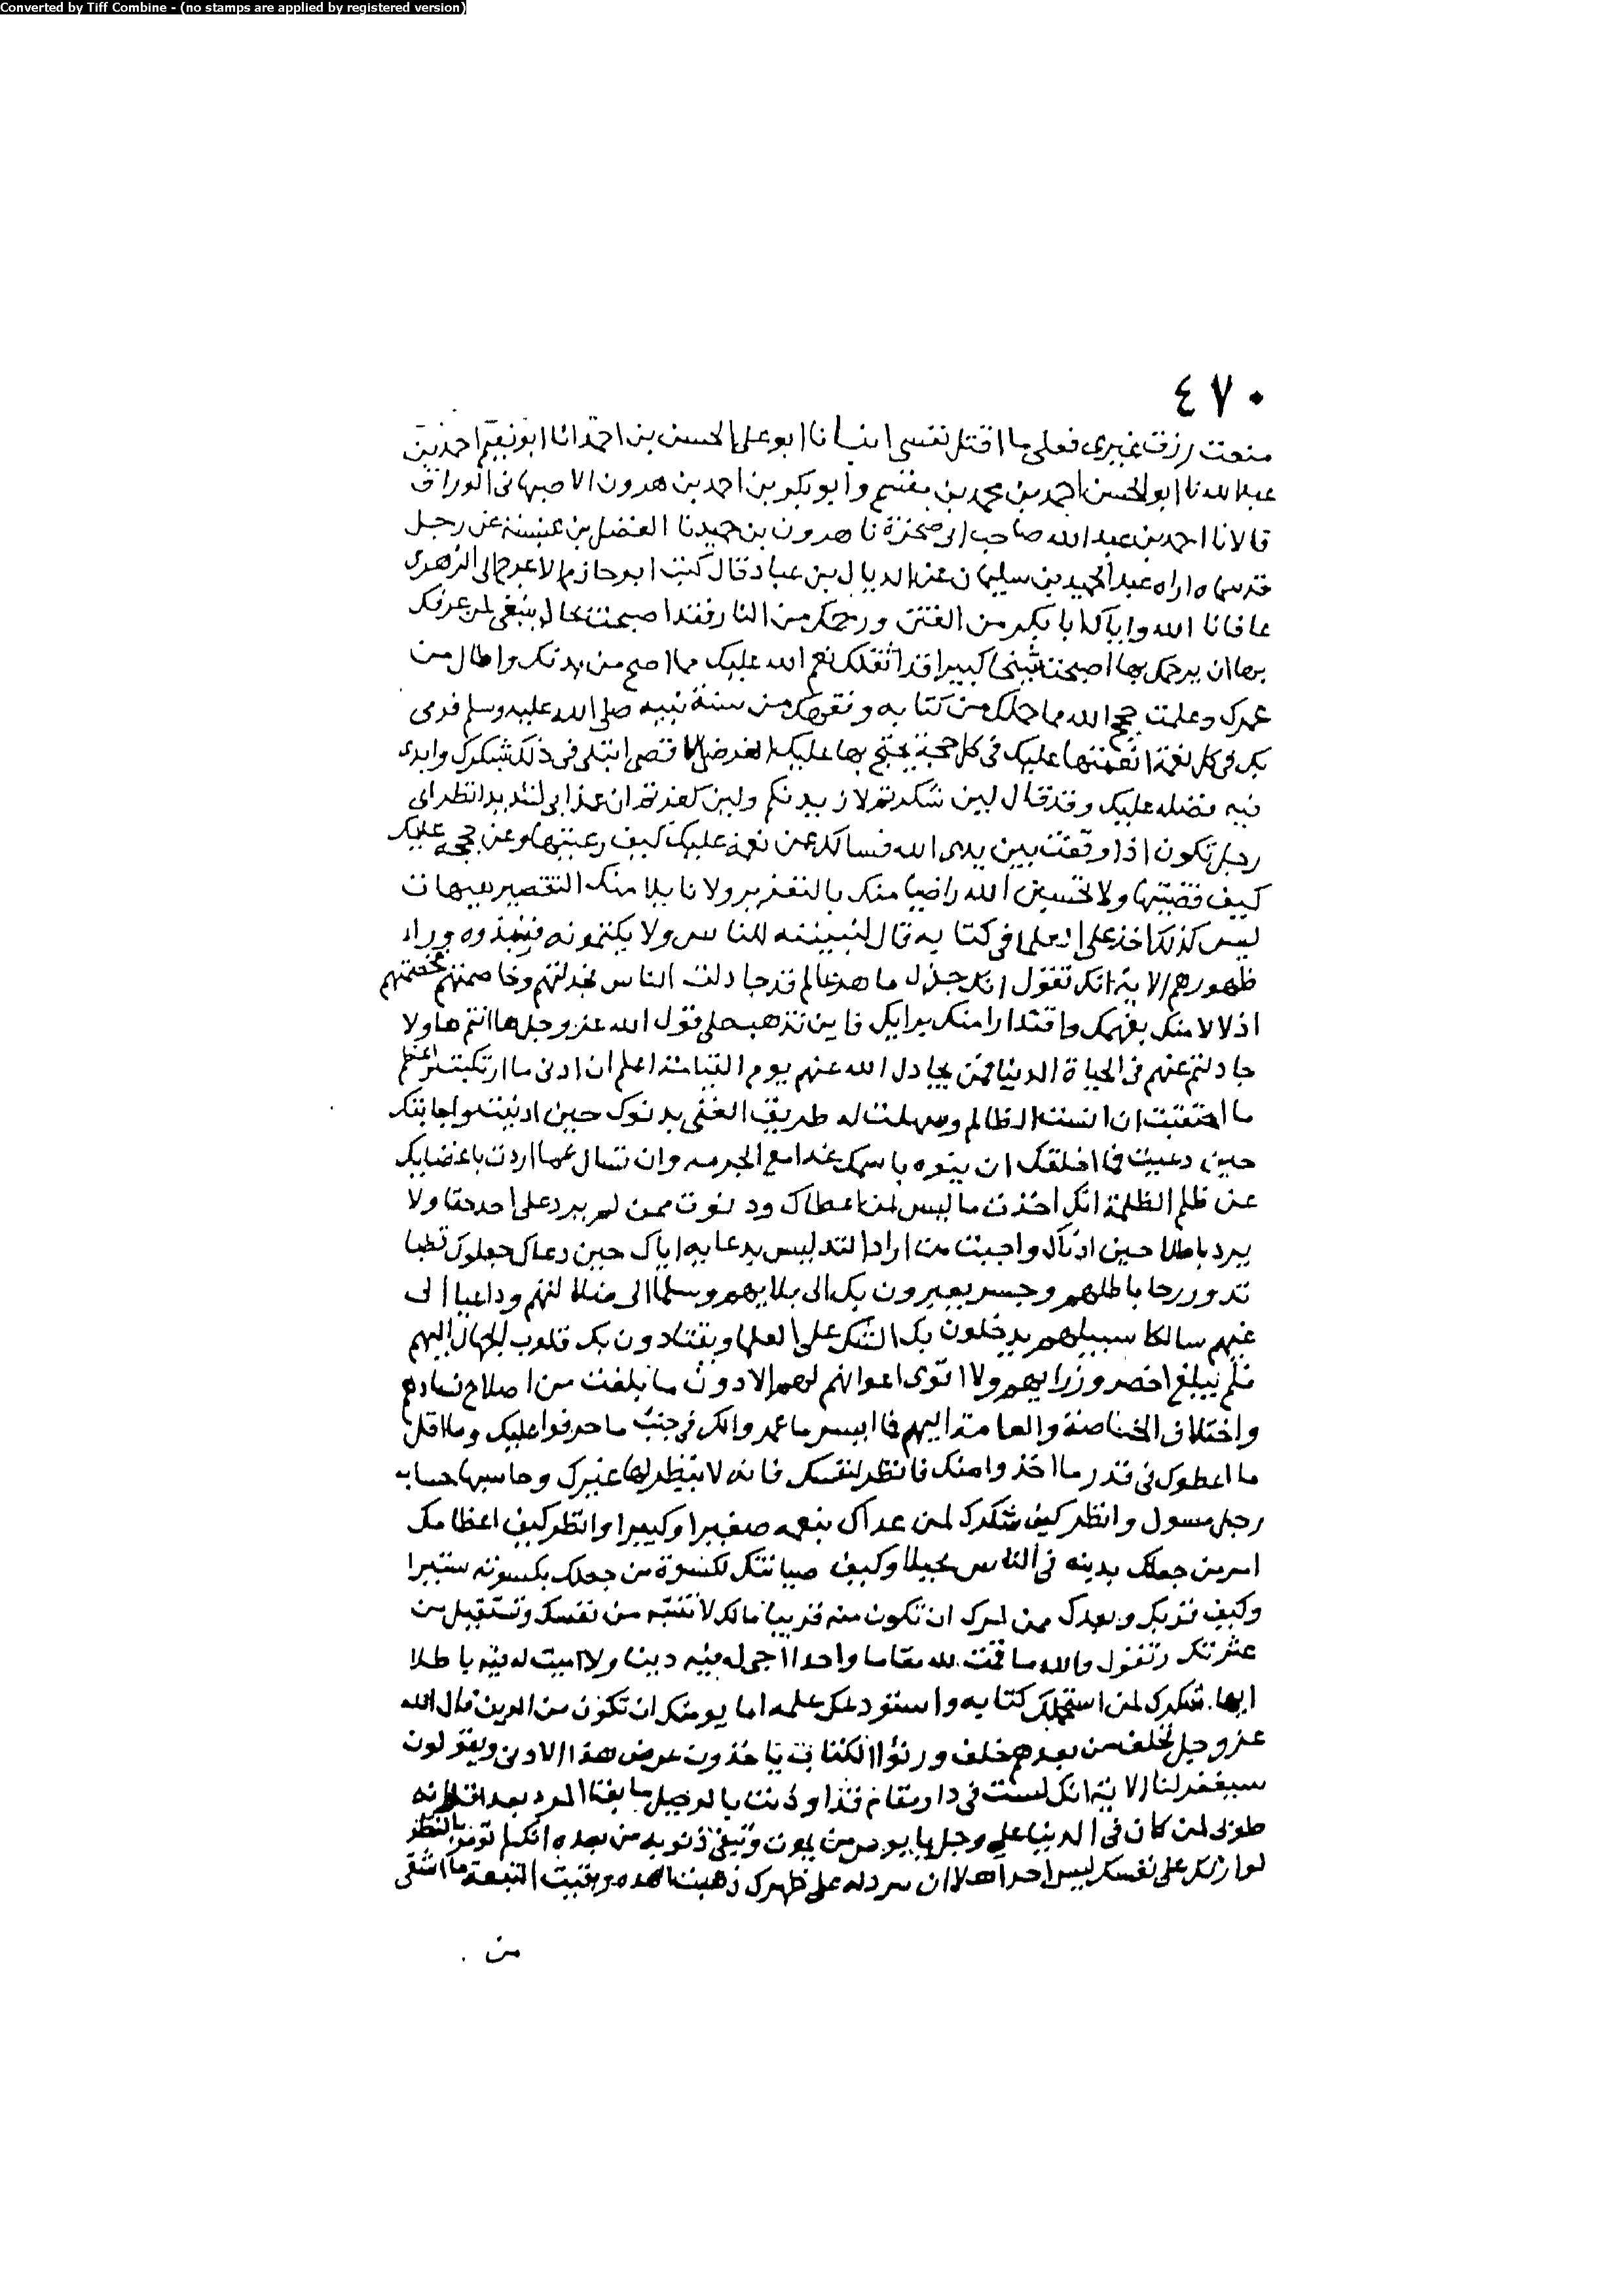 Converted by Tiff Combine - (no stamps are applied by registered version)
٤٧٠
منعت رزق غيري فعلى ما اقتل نفسي انبانا ابو على الحسن بن احمد انا ابو نعيم احمد بن
عبد الله نا ابو الحسن احمد بن محمد بن مقسم وابو بكر بن احمد بن هرون الاصبهانى الوراق
قالا نا احمد بن عبد الله صاحب ابى صخرة نا هرون بن حميد نا الفضل بن عنبسة عن رجل
قد سماه اراه عبد الحميد بن سليمان عن الديال بن عباد قال كتب ابو حازم الاعرج الى الزهرى
عافانا الله واياك ابا بكر من الفتن ورحمك من النار فقد اصبحت بحال ينبغى لمن عرفك
بها ان يرحمك بها اصبحت شيخا كبيرا قد اثقلك نعم الله عليك مما اصح من بدنك واطال من
عمرك وعلمت حجج الله مما حملك من كتابه وفقهك من سنة نبيه صلى الله عليه وسلم فرمى
بك فى كل نعمة انعمها عليك فى كل حجة يحتج بها عليك الغرض الاقصى ابتلى فى ذلك شكرك وابدى
فيه فضله عليك وقد قال لين شكرتم لازيدنكم ولين كفرتم ان عذابى لشديد انظر اى
رجل تكون اذا وقفت بين يدى الله فسالك عن نعمه عليك كيف رعيتها وعن حججه عليك
كيف قضيتها ولا تحسبن الله راضيا منك بالتغرير ولا قابلا منك التقصير هيهات
ليس كذلك اخذ على العلما فى كتابه قال لتبيننه للناس ولا يكتمونه فنبذوه وراء
ظهورهم الاية انك تقول انك جدل ماهر عالم قد جادلت الناس فجدلتهم وخاصمتهم فخصمتهم
اذلالا منك بفهمك واقتدارا منك برايك فاين تذهب على قول الله عز وجل ها انتم هاولا
جادلتم عنهم فى الحياة الدنيا فمن يجادل الله عنهم يوم القيامة اعلم ان ادنى ما ارتكبت واعظم
ما احتقبت ان انست الظالم وسهلت له طريق الغى بدنوك حين ادنيت واجابتك
حين دعيت فما اخلقك ان ينوه باسمك غدا مع الجرمه وان تسال عما اردت باغضايك
عن ظلم الظلمة انك اخذت ما ليس لمن اعطاك ودنوت ممن لم يرد على احد حقا ولا
يرد باطلا حين ادناك واجبت من اراد التدليس بدعايه اياك حين دعاك جعلوك قطبا
تدور رحا باطلهم وجسر يعبرون بك الى بلايهم وسلما الى ضلالتهم وداعيا الى
غيهم سالكا سبيلهم يدخلون بك الشك على العلما ويقتادون بك قلوب الجهال اليهم
فلم يبلغ اخص وزرايهم ولا اقوى اعوانهم لهم الا دون ما بلغت من اصلاح فسادهم
واختلاف الخاصة والعامة اليهم فما ايسر ما عمروا لك فى جنب ما خربوا عليك وما اقل
ما اعطوك فى قدر ما اخذوا منك فانظر لنفسك فانه لا ينظر لها غيرك وحاسبها حساب
رجل مسول وانظر كيف شكرك لمن غداك بنعمه صغيرا وكبيرا وانظر كيف اعظامك
امر من جعلك بدينه فى الناس بخيلا وكيف صيانتك لكسوة من جعلك بكسوته ستيرا
وكيف قربك وبعدك ممن امرك ان تكون منه قريبا مالك لا تنتبه من نعستك وتستقيل من
عثرتك وتقول والله ما قمت لله مقاما واحدا احيى له فيه دينا ولا اميت له فيه باطلا
ايها شكرك لمن استحملك كتابه واستودعك علمه اما يومنك ان تكون من الدين قال الله
عز وجل فخلف من بعدهم خلف ورثوا الكتاب ياخذون عرض هذا الادنى ويقولون
سيغفر لنا الاية انك لست فى دار مقام قد اوذنت بالرحيل ما بقا المرء بعد اقرانه
طوبى لمن كان فى الدنيا على وجل يا بوس من يموت وتبقى ذنوبه من بعده انك لم تومر بالنظر
لوارثك على نفسك ليس احد اهلا ان له على ظهرك ذهبت اللذه وبقيت التبعة ما اشقى
من